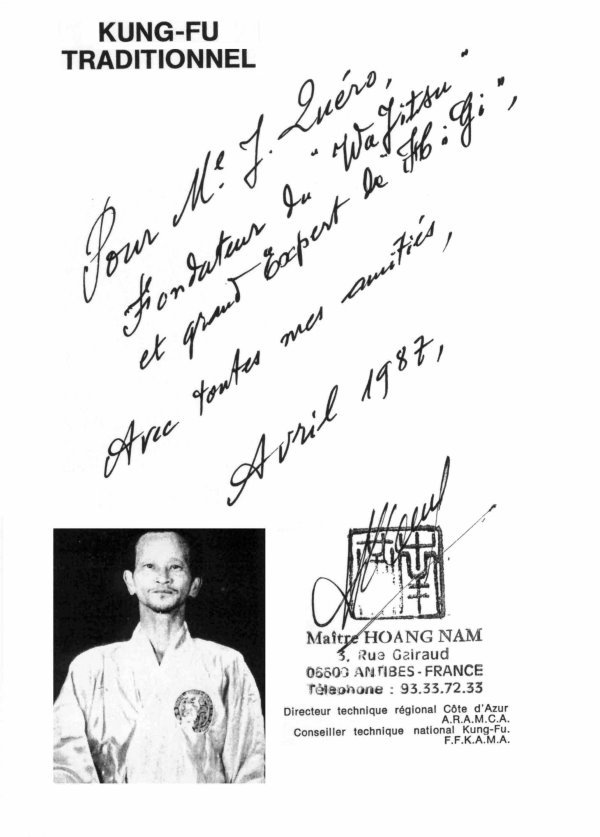 KUNG-FU
TRADITIONNEL
Pour Me. J. Quéro,
Fondateur du "WaJitsu"
et grand Expert de "Ki Gi",
Avec toutes mes amitiés,
Avril 1987,
Maître HOANG NAM
3, Rue Gairaud
06600 ANTIBES - FRANCE
Téléphone : 93.33.72.33
Directeur technique régional Côte d'Azur
A.R.A.M.C.A.
Conseiller technique national Kung-Fu.
F.F.K.A.M.A.